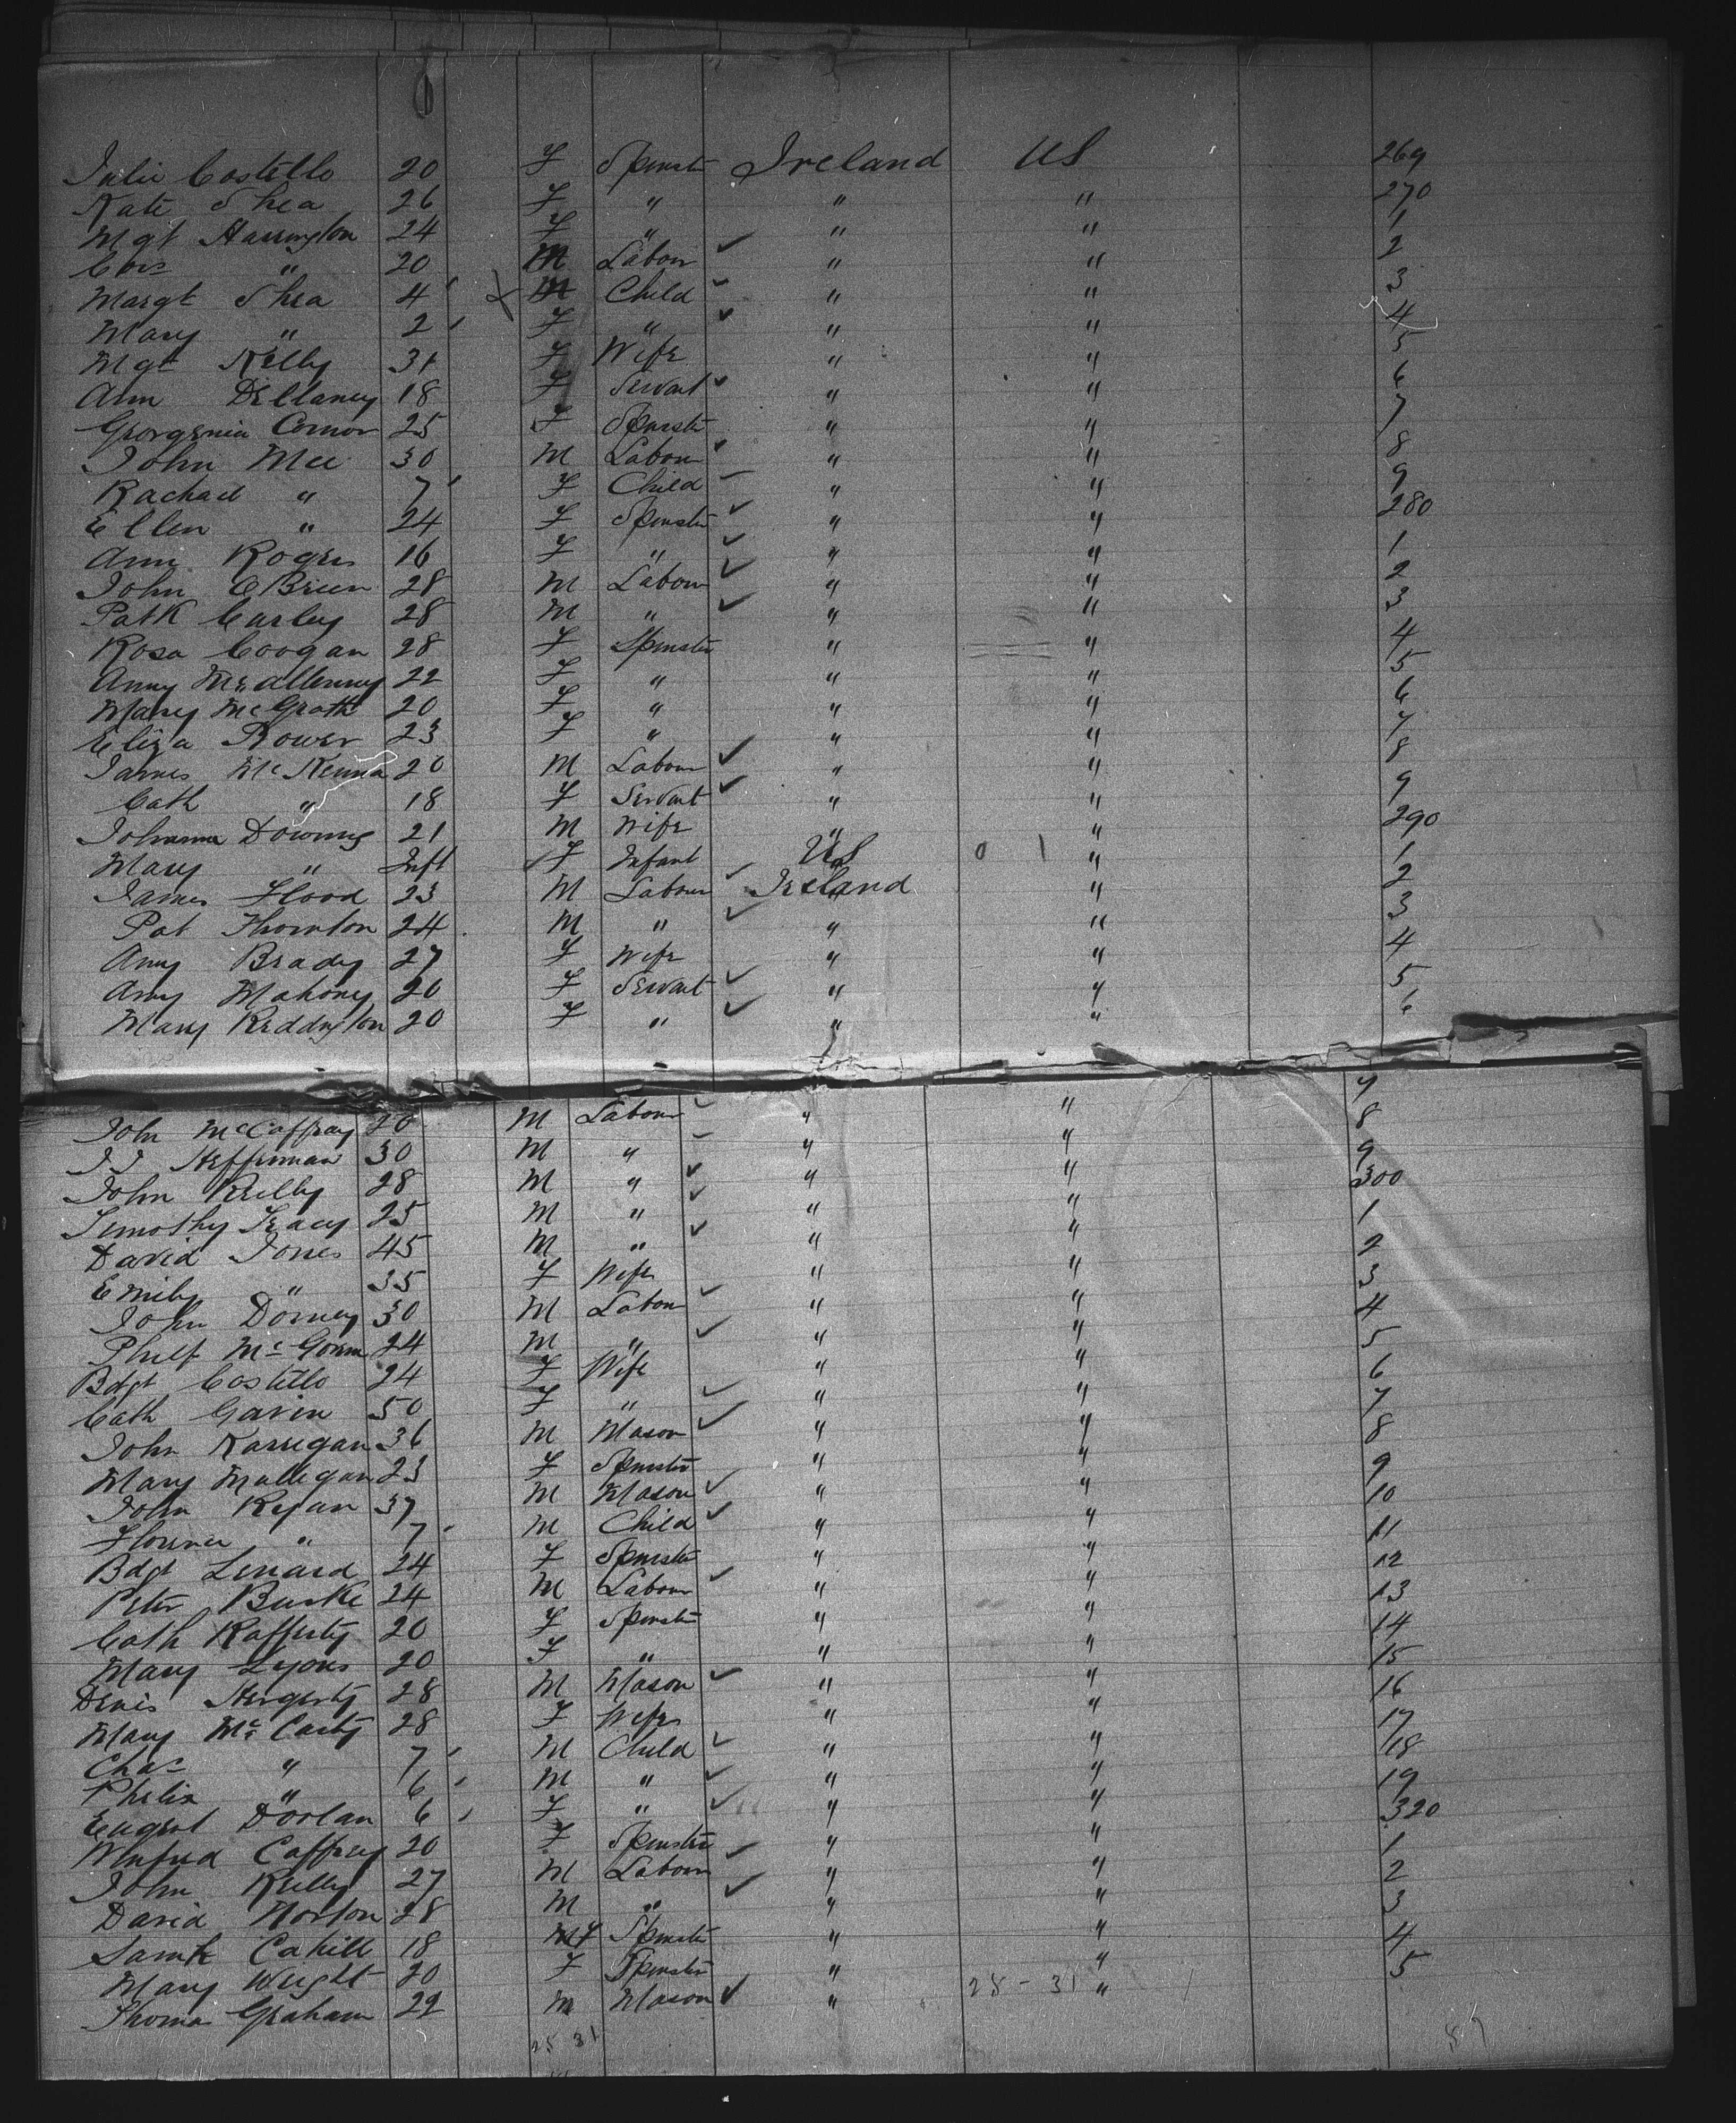 Julie Costello 20 F Spinster Ireland US 269
Kate Shea 26 F " " " 270
Mgt Harrington 24 F " " " 1
Cors " 20 M Labour " " 2
Margt Shea 4 M Child " " 3
Mary " 2 F " " " 4
Mgt Kelly 31 F Wife " " 5
Ann Dellaney 18 F Servant " " 6
Georgenia Connor 25 F Spinster " " 7
John Mee 30 M Labour " " 8
Rachael " 7 F Child " " 9
Ellen " 24 F Spinster " " 280
Ann Rogers 16 F " " " 1
John OBrien 28 M Labour " " 2
Patk Carley 28 M " " " 3
Rosa Coogan 28 F Spinster " " 4
Anny McAllenny 22 F " " " 5
Mary McGrath 20 F " " " 6
Eliza Power 23 F " " " 7
James McKenna 20 M Labour " " 8
Cath " 18 F Servant " " 9
Johanna Downing 21 M Wife " " 290
Mary " Inft F Infant US 0 1 " 1
James Flood 23 M Labour Ireland " 2
Pat Thornton 24 M " " " 3
Anny Brady 27 F Wife " " 4
Amy Mahony 20 F Servant " " 5
Mary Reddington 20 F " " " 6
John McCaffray 20 M Labour " " 7
J J Heffernan 30 M " " " 8
John Reilly 28 M " " " 9
Timothy Tracy 25 M " " " 300
David Jones 45 M " " " 1
Emily " 35 F Wife " " 2
John Dorney 30 M Labour " " 3
Philp McGovern 24 M " " " 4
Bdgt Costello 24 F Wife " " 5
Cath Gavin 50 F " " " 6
John Karrigan 36 M Mason " " 7
Mary Mulligan 23 F Spinster " " 8
John Regan 37 M Mason " " 9
Florence " 7 M Child " " 10
Bdgt Lenard 24 F Spinster " " 11
Peter Burke 24 M Labour " " 12
Cath Rafferty 20 F Spinster " " 13
Mary Lyons 20 F " " " 14
Denis Hegerty 28 M Mason " " 15
Mary McCarty 28 F Wife " " 16
Chas " 7 M Child " " 17
Phelix " 6 M " " " 18
Dorlan 6 F " " " 19
Winfred Caffrey 20 F Spinster " " 320
John Reilly 27 M Labour " " 1
David Norton 28 M " " " 2
Cahill 18 F Spinster " " 3
Mary Wright 20 F Spinster " " 4
Thomas Graham 22 M Mason " 28-31 " 5
25 31